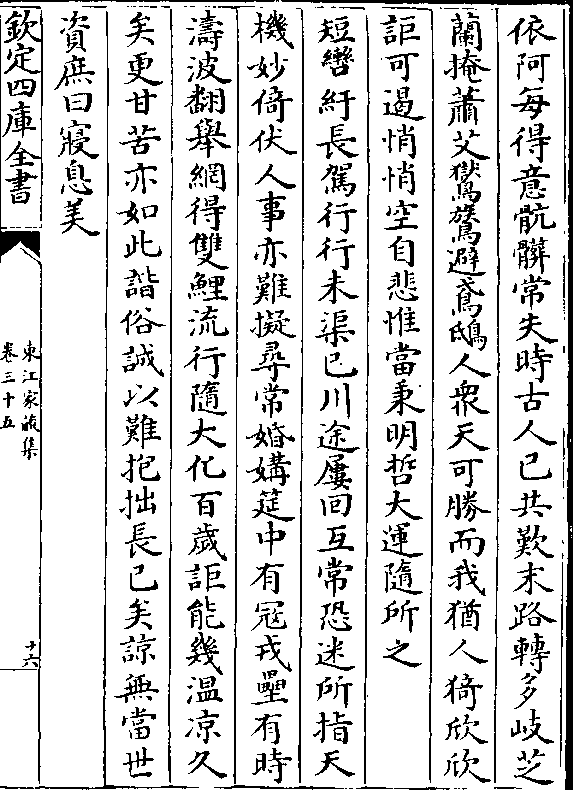 依阿每得意骯髒常失時古人已共歎末路轉多岐芝
蘭掩蕭艾鸑鷟避鳶鴟人衆天可勝而我猶人猗欣欣
詎可遏悄悄空自悲惟當秉明哲大運隨所之
短轡紆長駕行行未渠已川途屢回互常恐迷所指天
機妙倚伏人事亦難擬尋常婚媾筵中有冦戎壘有時
濤波翻舉網得雙鯉流行隨大化百歲詎能幾溫凉久
矣更甘苦亦如此諧俗誠以難抱拙長已矣諒無當世
資庶曰寢息美
欽定四庫全書
東江家藏集
卷三十五
十六